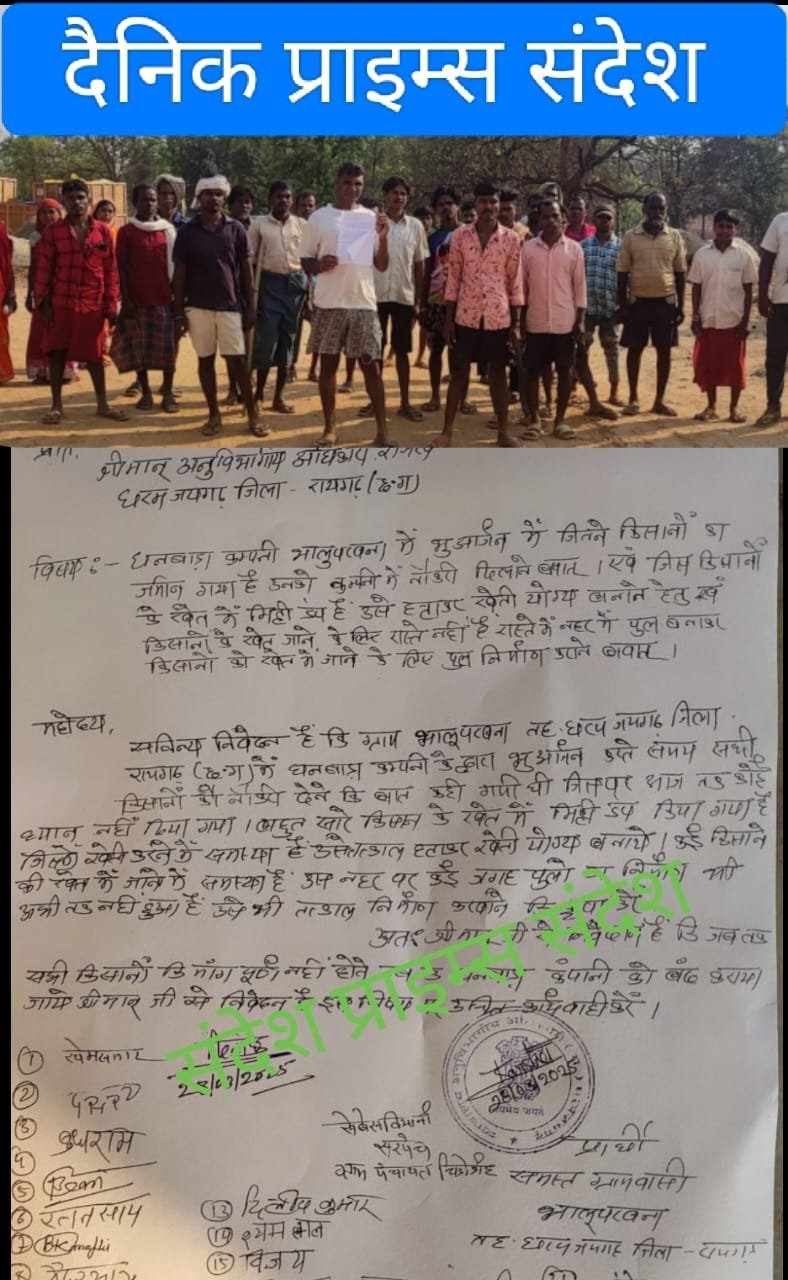 दैनिक प्राइम्स संदेश
श्रीमान् अनुविभागीय
धरमजयगढ़ जिला - रायगढ़ (छ.ग)
विषय :- धनबाड़ा कम्पनी भालुपखना में भुअर्जन में जितने किसानों का
जमिन गया है उनको कम्पनी में नौकरी दिलाने बाबत । एवं जिस किसानों
के खेत में मिट्टी डंप है उसे हटाकर खेती योग्य बनाने हेतु एवं
किसानों के खेत जाने के लिए रास्ते नहीं है रास्ते में नहर में पुल बनाकर
किसानों को खेत में जाने के लिए पुल निर्माण कराने बाबत ।
महोदय,
सविनय निवेदन है कि ग्राम भालूपखना तह. धरमजयगढ़ जिला -
रायगढ़ (छ.ग) में धनबाड़ा कम्पनी के द्वारा भुअर्जन करते समय सभी
किसानों को नौकरी देने कि बात कही गयी थी जिसपर आज तक कोई
ध्यान नहीं दिया गया । बहुत सारे किसान के खेत में मिट्टी डंप किया गया है
जिससे खेती करने में समस्या है उसे तत्काल हटाकर खेती योग्य बनाये । कई किसाने
की खेत में जाने में समस्या है उस नहर पर कई जगह पुलो का निर्माण भी
अभी तक नहीं हुआ है उसे भी तत्काल निर्माण करवाने कि
अतः श्रीमान जी से निवेदन है कि जब तक
सभी किसानों कि माँग पूर्ण नहीं होते कंपनी को बंद कराया
जाये श्रीमान् जी से निवेदन है उचित कार्यवाही करें ।
संदेश प्राइम्स संदेश
① खेमसागर
28/03/2025
28/03/2025
②
③ बुधराम
④
⑤
⑥ रतनसाय
⑦
सरपंच
ग्राम पंचायत
प्रार्थी
समस्त ग्रामवासी
भालूपखना
तह. धरमजयगढ़ जिला - रायगढ़
⑬ दिलीप कुमार
⑭
⑮ विजय